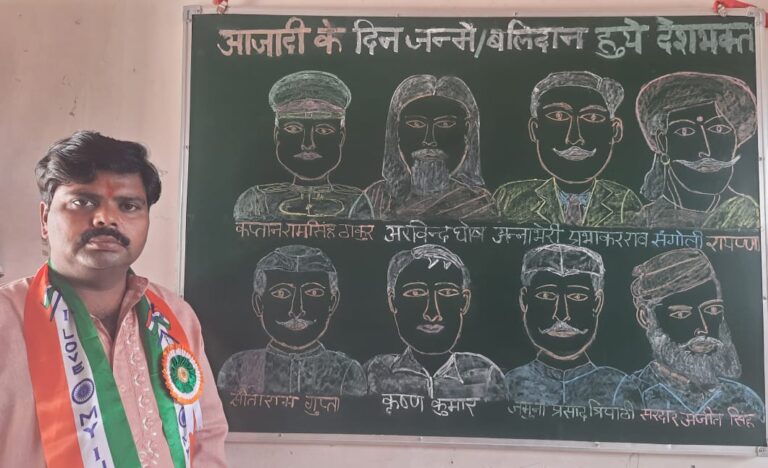 आजादी के दिन जन्मे/बलिदान हुये देशभक्त
कप्तान रामसिंह ठाकुर अरविन्द घोष अन्नाभेरी प्रभाकरराव संगोली रायप्पा
सीताराम गुप्ता कृष्ण कुमार जमुना प्रसाद त्रिपाठी सरदार अजीत सिंह
I LOVE MY I